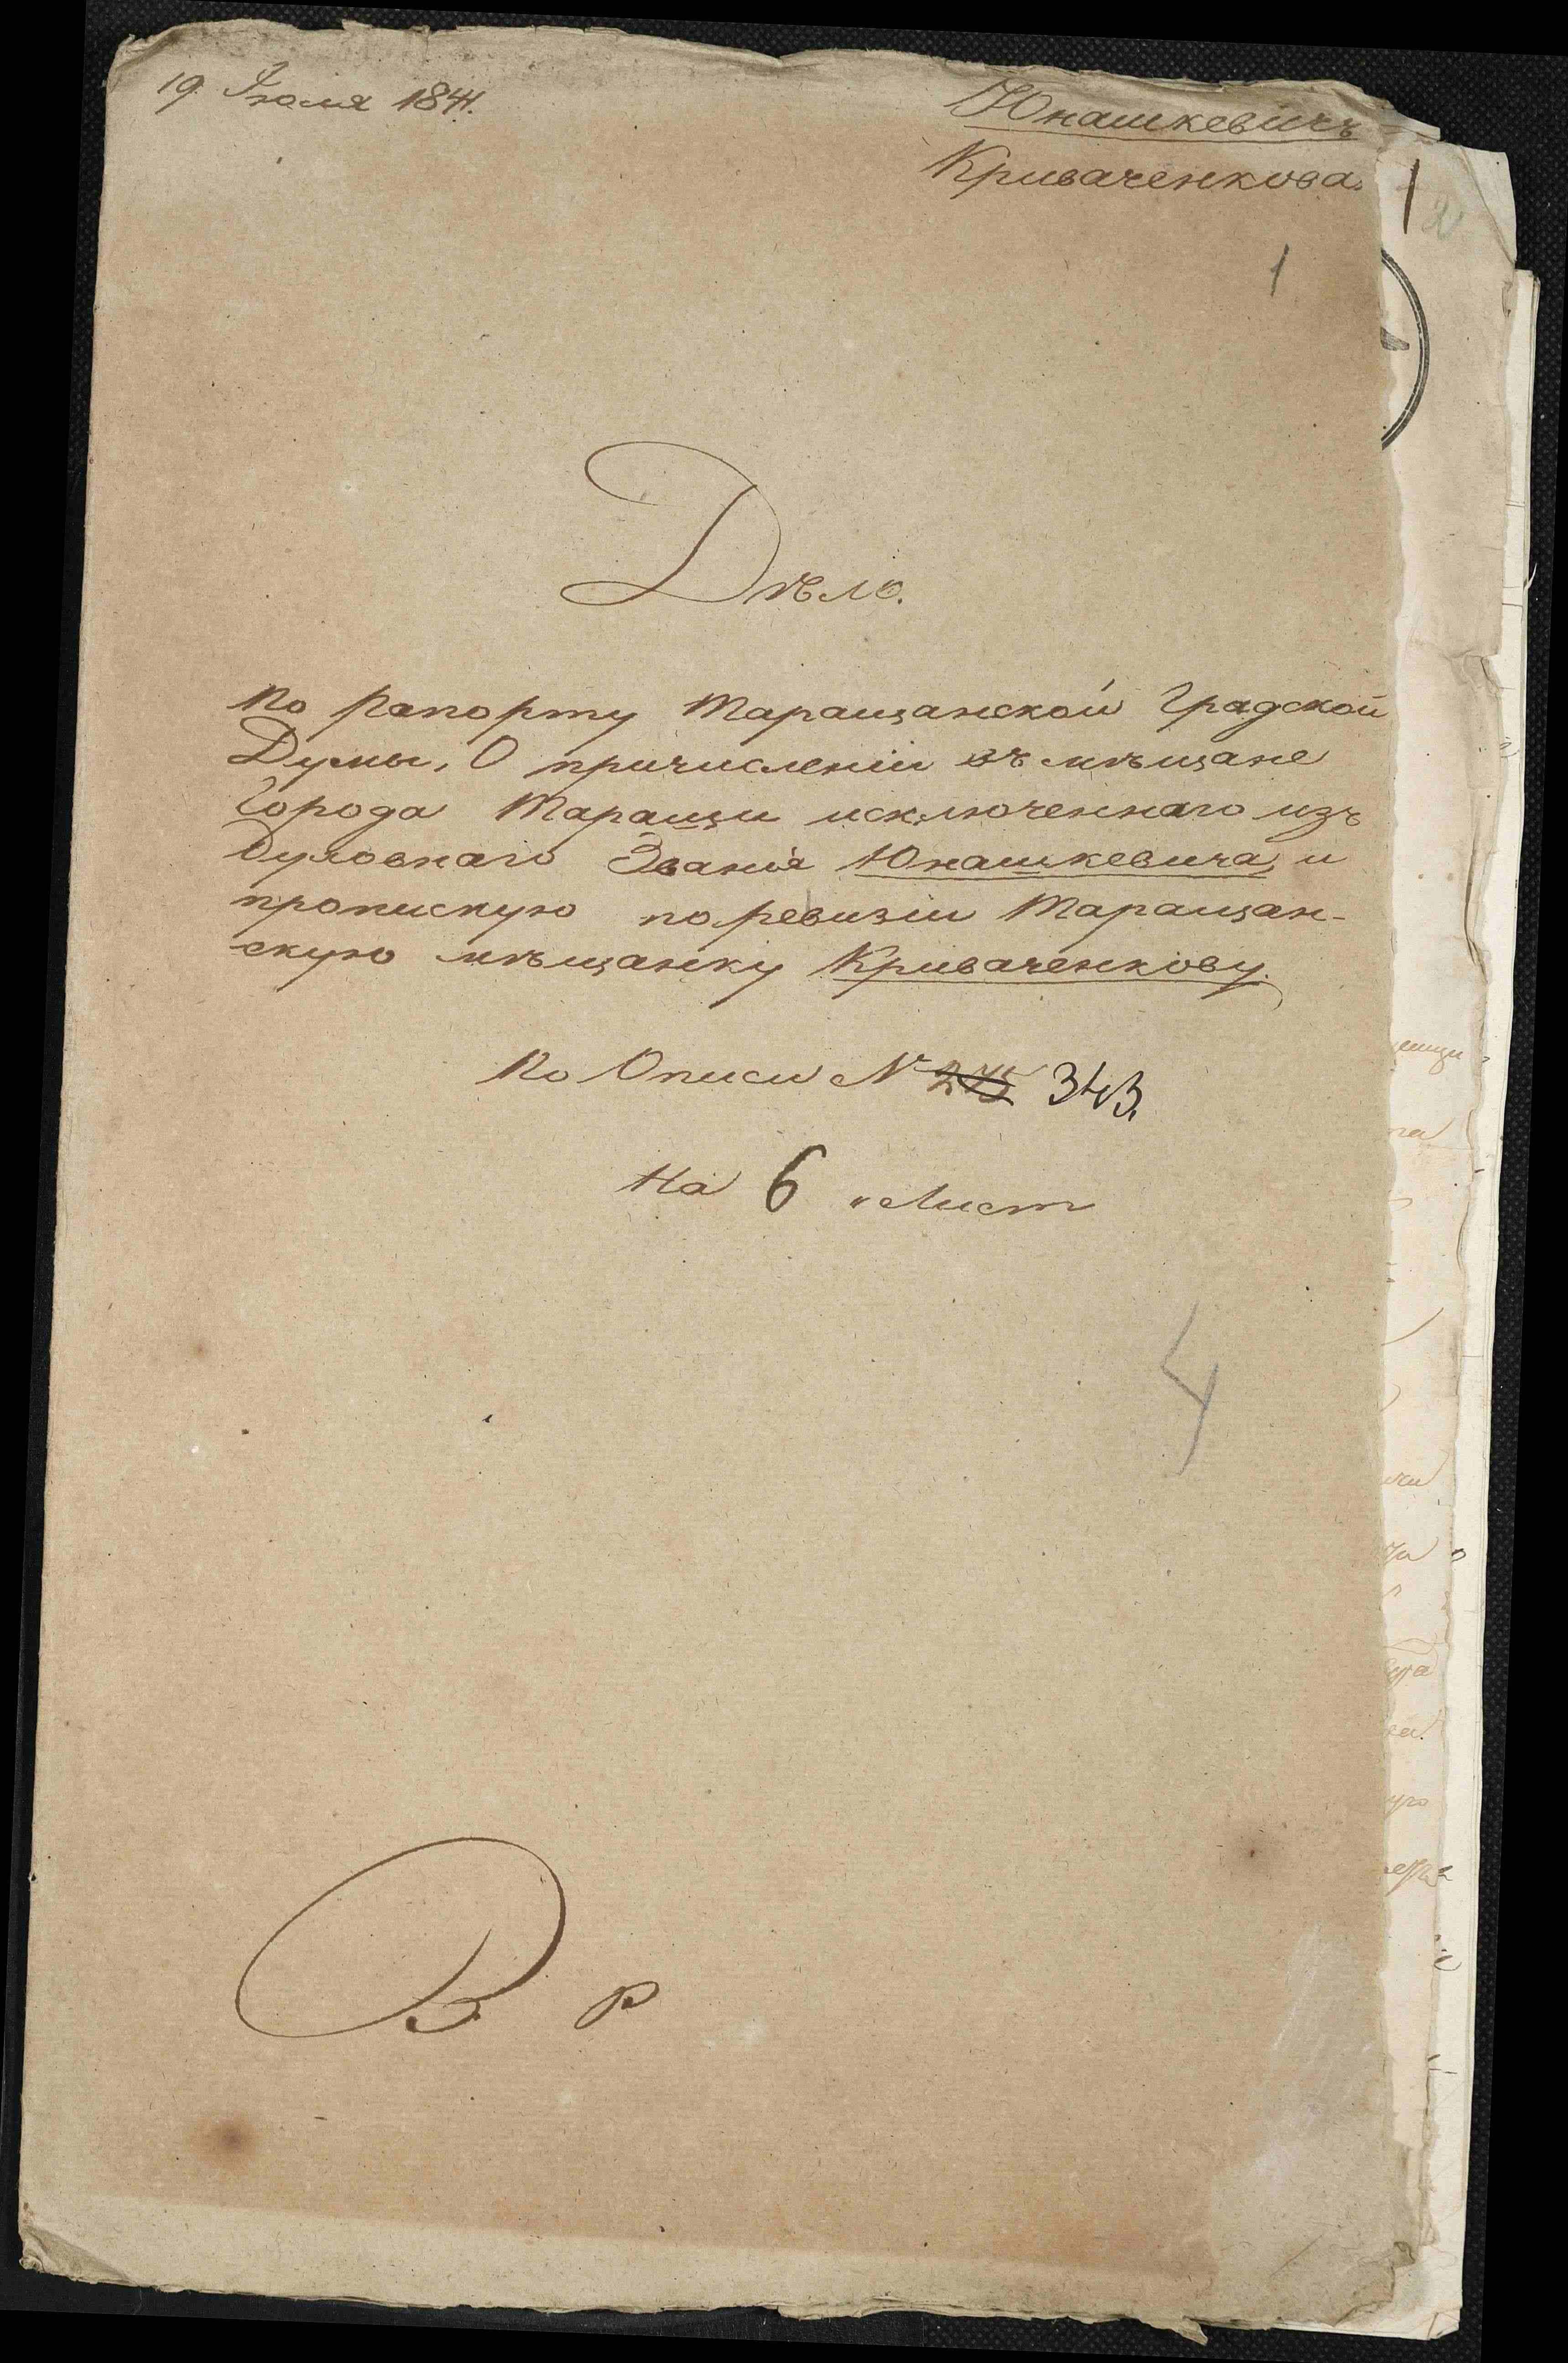 19. Іюля 1841.
Юнашкевичъ
Криваченкова.
1
1
2
Дѣло.
По рапорту Таращанской Градской
Думы, О причисленіи въ мѣщане
Города Таращи исключеннаго изъ
Духовнаго Званія Юнашкевича, и
прописную по ревизіи Таращан-
скую мѣщанку Криваченкову.
По Описи № 275 343.
На 6 "Лист
4
В Р